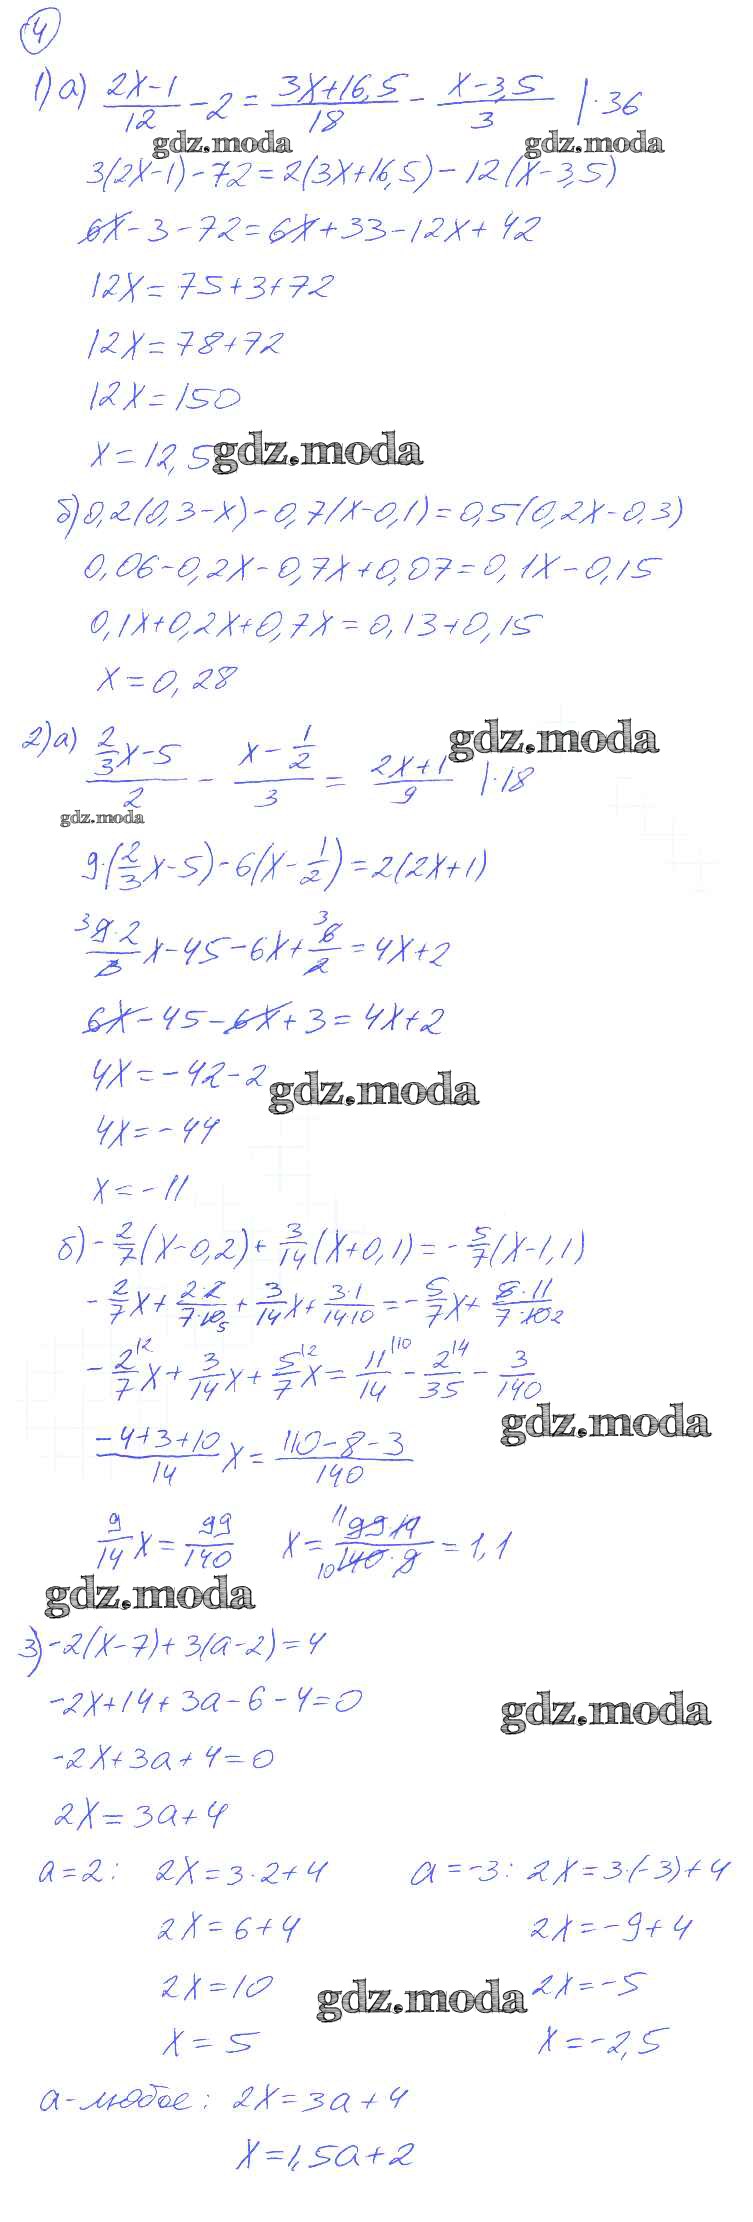 4
1) а) (2x-1)/12 - 2 = (3x+16,5)/18 - (x-3,5)/3 |·36
gdz.moda gdz.moda
3(2x-1)-72=2(3x+16,5)-12(x-3,5)
6x-3-72=6x+33-12x+42
12x=75+3+72
12x=78+72
12x=150
x=12,5 gdz.moda
б) 0,2(0,3-x)-0,7(x-0,1)=0,5(0,2x-0,3)
0,06-0,2x-0,7x+0,07=0,1x-0,15
0,1x+0,2x+0,7x=0,13+0,15
x=0,28
gdz.moda
2) а) (2/3 x-5)/2 - (x-1/2)/3 = (2x+1)/9 |·18
gdz.moda
9·(2/3 x-5)-6(x-1/2)=2(2x+1)
3 9·2/3 x-45-6x+ 3 6/2 =4x+2
6x-45-6x+3=4x+2
4x=-42-2
gdz.moda
4x=-44
x=-11
б) -2/7(x-0,2)+3/14(x+0,1)=-5/7(x-1,1)
-2/7 x+(2·2)/(7·10 5)+3/14 x+(3·1)/(14·10)=-5/7 x+(5·11)/(7·10 2)
-2/7 |2 x+3/14 x+5/7 |2 x=11/14 |10 -2/35 |4 -3/140
gdz.moda
(-4+3+10)/14 x=(110-8-3)/140
9/14 x=99/140 x= (11 99·14)/(10 140·9) =1,1
gdz.moda
3) -2(x-7)+3(a-2)=4
-2x+14+3a-6-4=0
gdz.moda
-2x+3a+4=0
2x=3a+4
a=2: 2x=3·2+4 a=-3: 2x=3·(-3)+4
2x=6+4 2x=-9+4
2x=10 gdz.moda 2x=-5
x=5 x=-2,5
a-любое: 2x=3a+4
x=1,5a+2